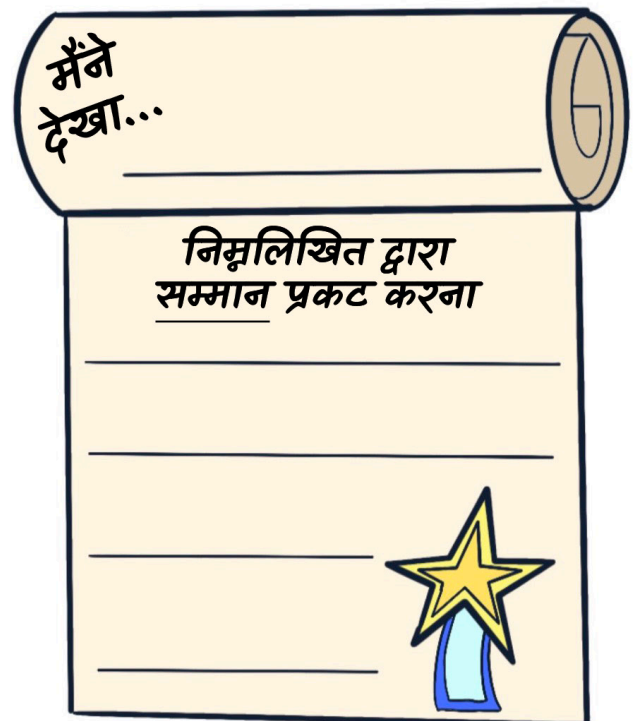 मैंने
देखा...
निम्नलिखित द्वारा
सम्मान प्रकट करना